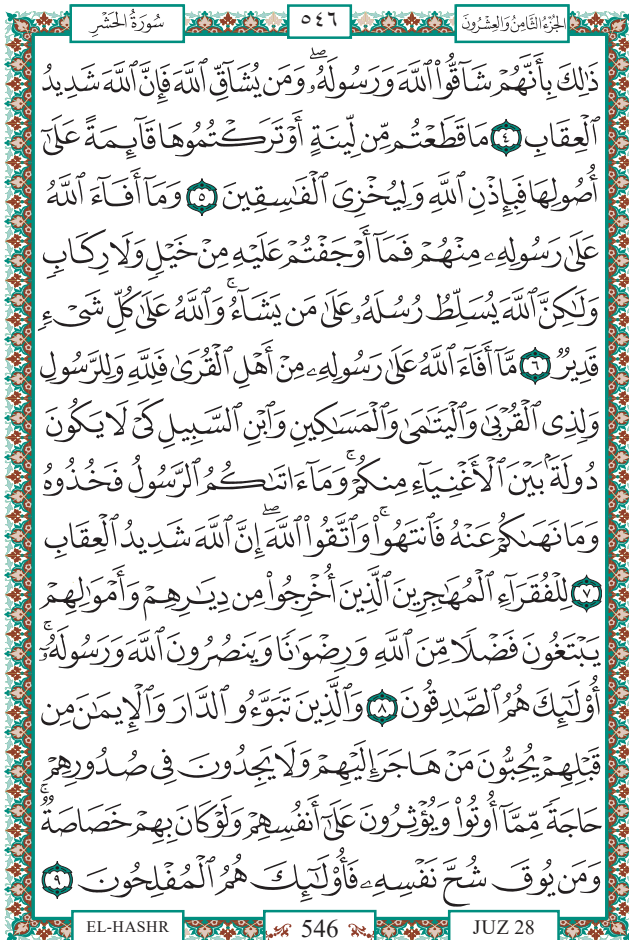 سُورَةُ الْحَشْرِ ٥٤٦ الجُزْءُ الثَّامِنُ وَالعِشْرُونَ
ذَٰلِكَ بِأَنَّهُمْ شَآقُّوا۟ ٱللَّهَ وَرَسُولَهُۥ ۖ وَمَن يُشَآقِّ ٱللَّهَ فَإِنَّ ٱللَّهَ شَدِيدُ
ٱلْعِقَابِ ٤ مَا قَطَعْتُم مِّن لِّينَةٍ أَوْ تَرَكْتُمُوهَا قَآئِمَةً عَلَىٰٓ
أُصُولِهَا فَبِإِذْنِ ٱللَّهِ وَلِيُخْزِىَ ٱلْفَٰسِقِينَ ٥ وَمَآ أَفَآءَ ٱللَّهُ
عَلَىٰ رَسُولِهِۦ مِنْهُمْ فَمَآ أَوْجَفْتُمْ عَلَيْهِ مِنْ خَيْلٍ وَلَا رِكَابٍ
وَلَٰكِنَّ ٱللَّهَ يُسَلِّطُ رُسُلَهُۥ عَلَىٰ مَن يَشَآءُ ۚ وَٱللَّهُ عَلَىٰ كُلِّ شَىْءٍ
قَدِيرٌ ٦ مَّآ أَفَآءَ ٱللَّهُ عَلَىٰ رَسُولِهِۦ مِنْ أَهْلِ ٱلْقُرَىٰ فَلِلَّهِ وَلِلرَّسُولِ
وَلِذِى ٱلْقُرْبَىٰ وَٱلْيَتَٰمَىٰ وَٱلْمَسَٰكِينِ وَٱبْنِ ٱلسَّبِيلِ كَىْ لَا يَكُونَ
دُولَةًۢ بَيْنَ ٱلْأَغْنِيَآءِ مِنكُمْ ۚ وَمَآ ءَاتَىٰكُمُ ٱلرَّسُولُ فَخُذُوهُ
وَمَا نَهَىٰكُمْ عَنْهُ فَٱنتَهُوا۟ ۚ وَٱتَّقُوا۟ ٱللَّهَ ۖ إِنَّ ٱللَّهَ شَدِيدُ ٱلْعِقَابِ
٧ لِلْفُقَرَآءِ ٱلْمُهَٰجِرِينَ ٱلَّذِينَ أُخْرِجُوا۟ مِن دِيَٰرِهِمْ وَأَمْوَٰلِهِمْ
يَبْتَغُونَ فَضْلًا مِّنَ ٱللَّهِ وَرِضْوَٰنًا وَيَنصُرُونَ ٱللَّهَ وَرَسُولَهُۥٓ ۚ
أُو۟لَٰٓئِكَ هُمُ ٱلصَّٰدِقُونَ ٨ وَٱلَّذِينَ تَبَوَّءُو ٱلدَّارَ وَٱلْإِيمَٰنَ مِن
قَبْلِهِمْ يُحِبُّونَ مَنْ هَاجَرَ إِلَيْهِمْ وَلَا يَجِدُونَ فِى صُدُورِهِمْ
حَاجَةً مِّمَّآ أُوتُوا۟ وَيُؤْثِرُونَ عَلَىٰٓ أَنفُسِهِمْ وَلَوْ كَانَ بِهِمْ خَصَاصَةٌ ۚ
وَمَن يُوقَ شُحَّ نَفْسِهِۦ فَأُو۟لَٰٓئِكَ هُمُ ٱلْمُفْلِحُونَ ٩
EL-HASHR 546 JUZ 28